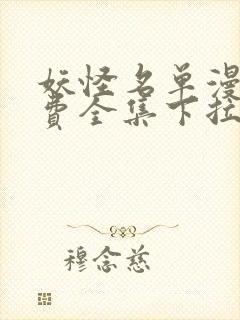 妖怪名单漫
费全集下拉
穆念慈